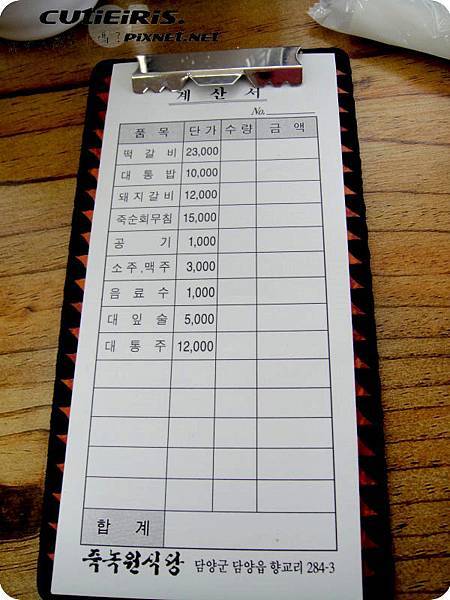 CUtiEiRiS.
PixNet.Net
계 산 서
No.
품 목 단 가 수 량 금 액
떡 갈 비 23,000
대 통 밥 10,000
돼 지 갈 비 12,000
죽순회무침 15,000
공 기 1,000
소 주 , 맥 주 3,000
음 료 수 1,000
대 잎 술 5,000
대 통 주 12,000
합 계
죽녹원식당 담양군 담양읍 향교리 284-3